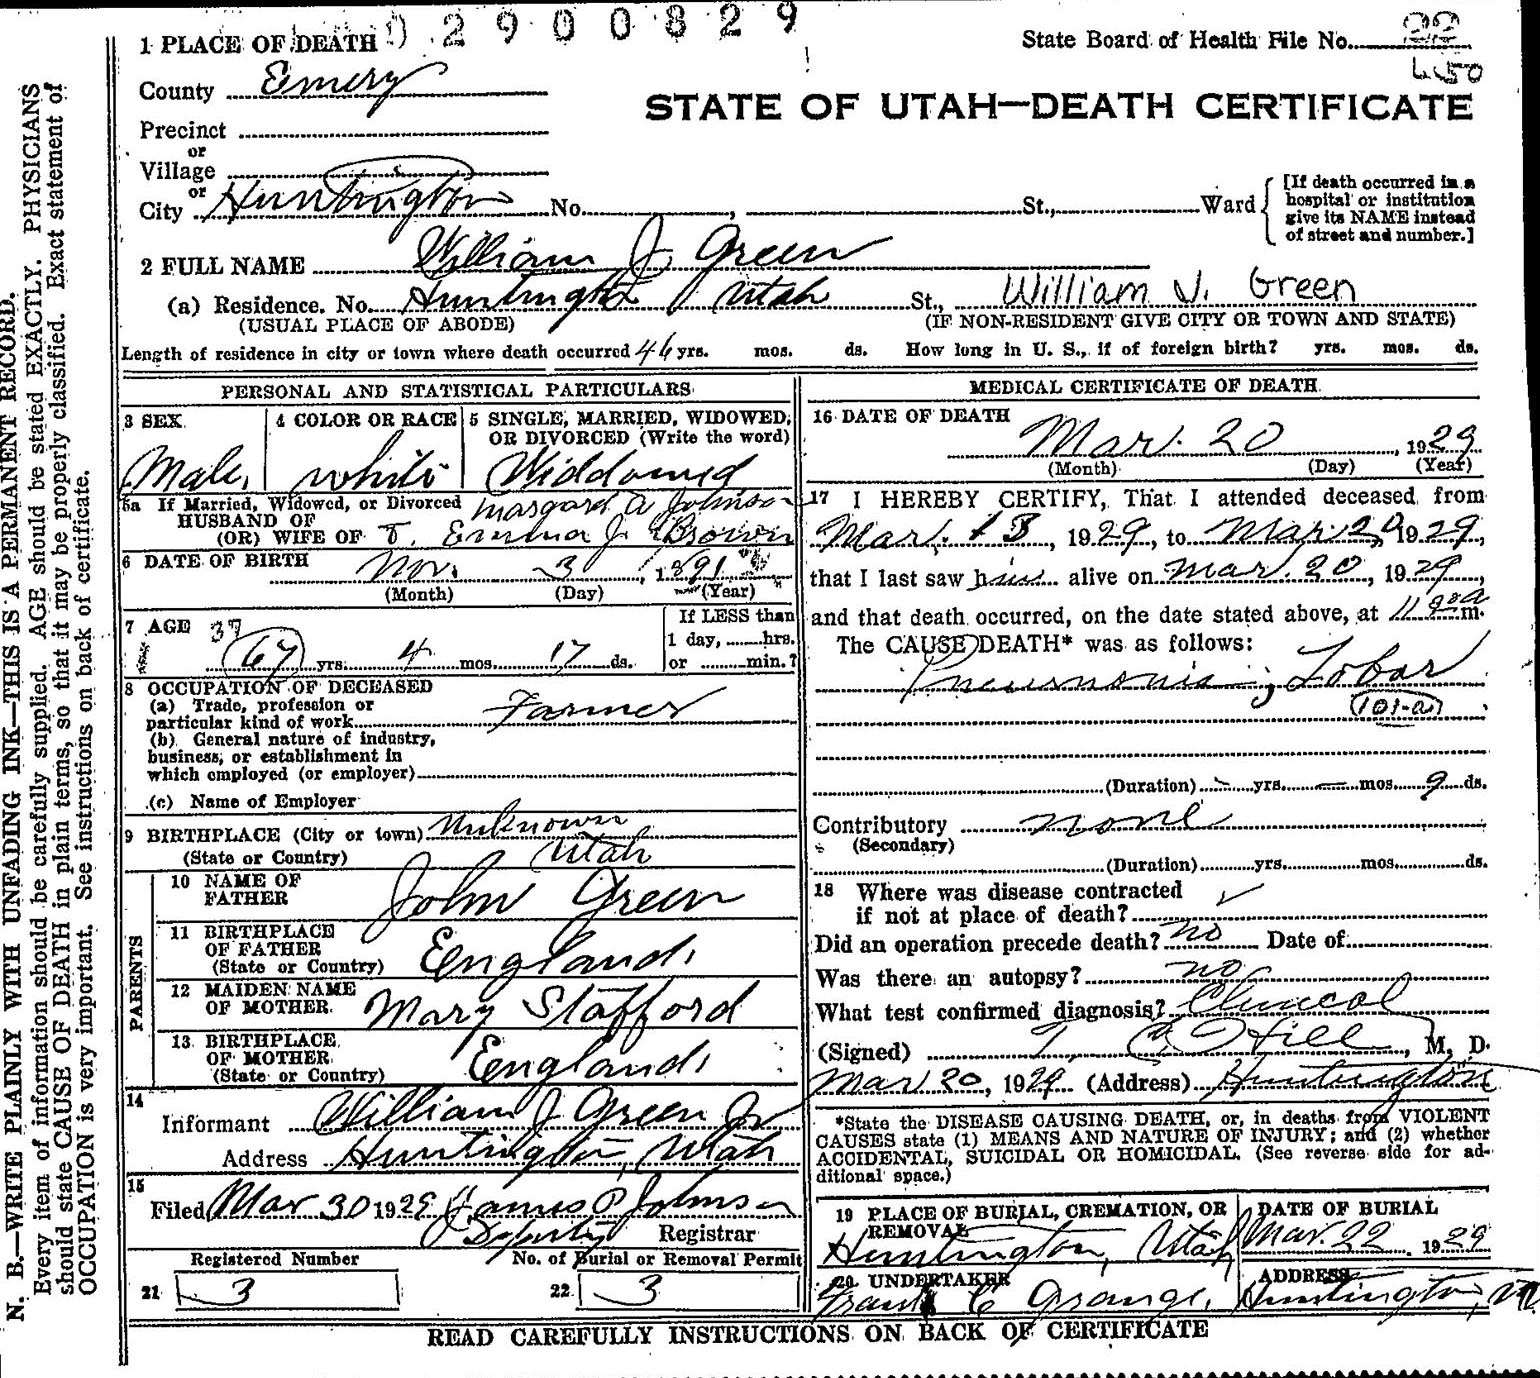 02900829
1 PLACE OF DEATH
State Board of Health File No. 22
450
County Emery
STATE OF UTAH—DEATH CERTIFICATE
Precinct
or
Village
or
City Huntington No. , St., Ward
[If death occurred in a
hospital or institution
give its NAME instead
of street and number.]
2 FULL NAME William J Green
(a) Residence. No. Huntington Utah St., William J. Green
(USUAL PLACE OF ABODE) (IF NON-RESIDENT GIVE CITY OR TOWN AND STATE)
Length of residence in city or town where death occurred 46 yrs. mos. ds. How long in U. S., if of foreign birth? yrs. mos. ds.
PERSONAL AND STATISTICAL PARTICULARS
3 SEX 4 COLOR OR RACE 5 SINGLE, MARRIED, WIDOWED,
OR DIVORCED (Write the word)
Male, White Widdowed
5a If Married, Widowed, or Divorced Margard A Johnson
HUSBAND OF
(OR) WIFE OF Emma J. Brown
6 DATE OF BIRTH Nov. 3, 1891
(Month) (Day) (Year)
7 AGE 37
67 yrs. 4 mos. 17 ds.
If LESS than
1 day, hrs.
or min.?
8 OCCUPATION OF DECEASED
(a) Trade, profession or
particular kind of work Farmer
(b) General nature of industry,
business, or establishment in
which employed (or employer)
(c) Name of Employer
9 BIRTHPLACE (City or town) Unknown
(State or Country) Utah
PARENTS
10 NAME OF
FATHER John Green
11 BIRTHPLACE
OF FATHER England.
(State or Country)
12 MAIDEN NAME
OF MOTHER Mary Stafford
13 BIRTHPLACE
OF MOTHER England.
(State or Country)
14
Informant William J Green Jr
Address Huntington, Utah
15
Filed Mar 30 1929 James P Johnson
Deputy Registrar
Registered Number No. of Burial or Removal Permit
21 3 22 3
MEDICAL CERTIFICATE OF DEATH
16 DATE OF DEATH
Mar. 20, 1929
(Month) (Day) (Year)
17 I HEREBY CERTIFY, That I attended deceased from
Mar. 13, 1929, to Mar. 20, 1929,
that I last saw him alive on Mar. 20, 1929,
and that death occurred, on the date stated above, at m.
The CAUSE DEATH* was as follows:
Pneumonia; Lobar
101-a
(Duration) yrs. — mos. 9 ds.
Contributory none
(Secondary)
(Duration) yrs. mos. ds.
18 Where was disease contracted
if not at place of death?
Did an operation precede death? no Date of
Was there an autopsy? no
What test confirmed diagnosis? Clinical
(Signed) T. C. Hill, M. D.
Mar 20, 1929 (Address) Huntington
*State the DISEASE CAUSING DEATH, or, in deaths from VIOLENT
CAUSES state (1) MEANS AND NATURE OF INJURY; and (2) whether
ACCIDENTAL, SUICIDAL OR HOMICIDAL. (See reverse side for ad-
ditional space.)
19 PLACE OF BURIAL, CREMATION, OR
REMOVAL
Huntington, Utah
DATE OF BURIAL
Mar. 22 1929
20 UNDERTAKER
Frank C Grange,
ADDRESS
Huntington,
READ CAREFULLY INSTRUCTIONS ON BACK OF CERTIFICATE
N. B.—WRITE PLAINLY WITH UNFADING INK—THIS IS A PERMANENT RECORD.
Every item of information should be carefully supplied. AGE should be stated EXACTLY. PHYSICIANS
should state CAUSE OF DEATH in plain terms, so that it may be properly classified. Exact statement of
OCCUPATION is very important. See instructions on back of certificate.